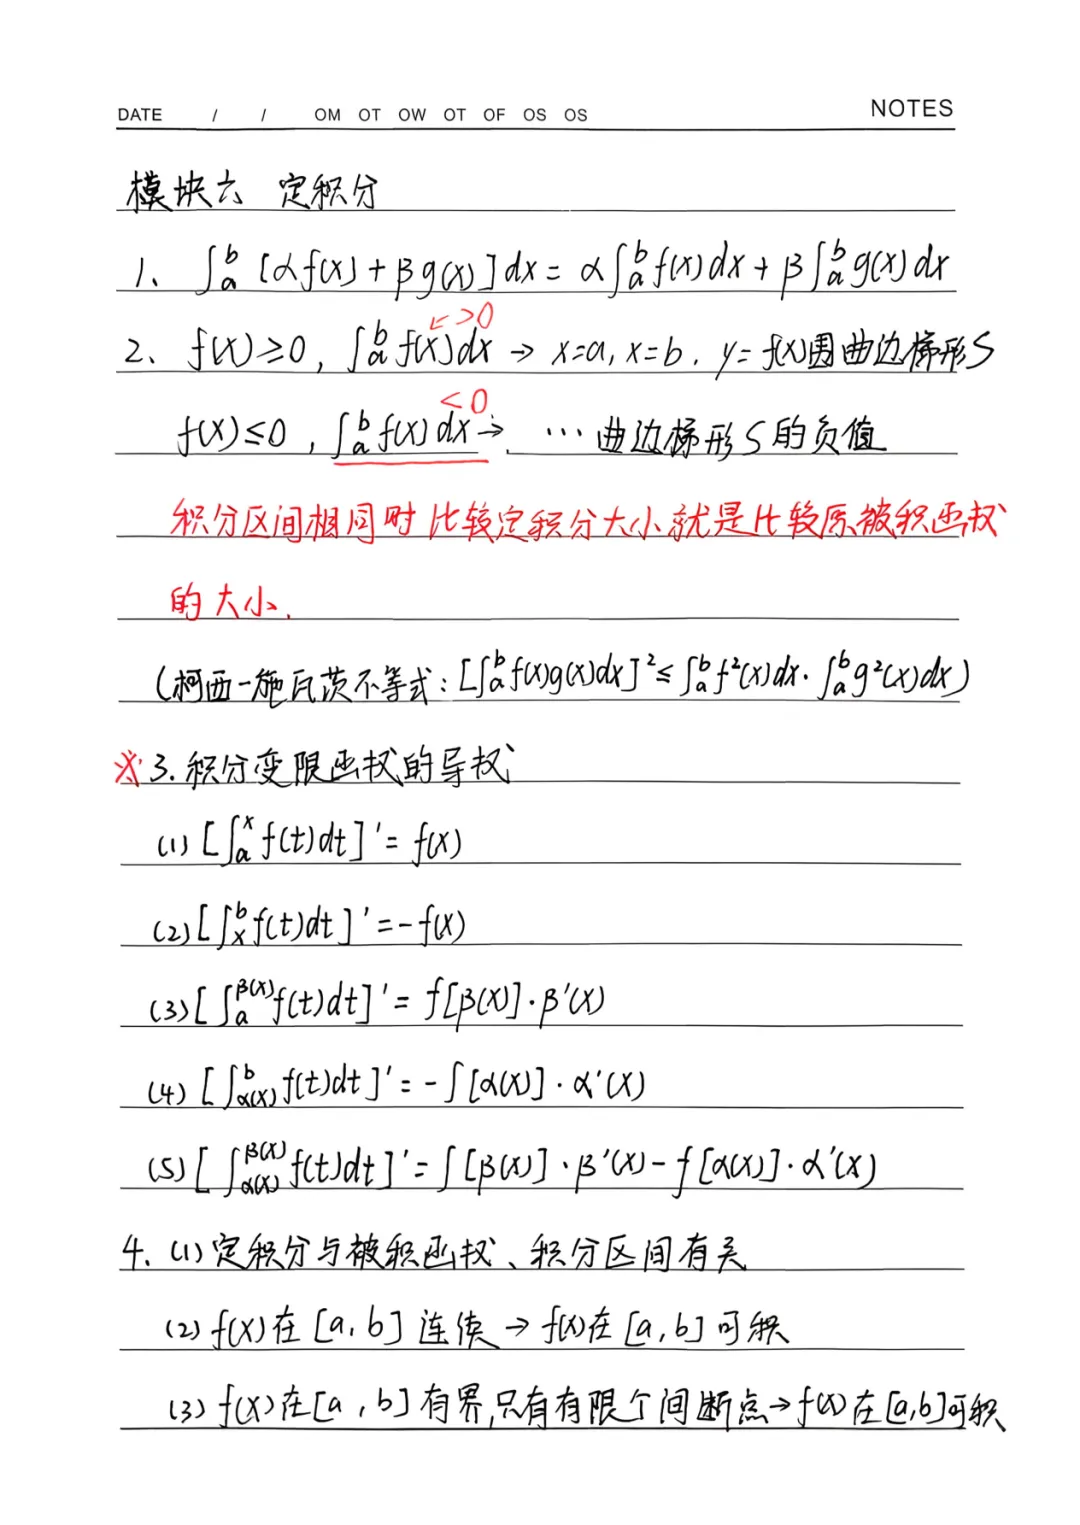 DATE / / OM OT OW OT OF OS OS NOTES
模块六 定积分
1、 ∫_a^b [αf(x)+βg(x)]dx = α∫_a^b f(x)dx + β∫_a^b g(x)dx
↙>0
2、 f(x)≥0, ∫_a^b f(x)dx → x=a, x=b, y=f(x)围曲边梯形S
<0
f(x)≤0, ∫_a^b f(x)dx → … 曲边梯形S的负值
积分区间相同时比较定积分大小就是比较原被积函数
的大小.
(柯西-施瓦茨不等式: [∫_a^b f(x)g(x)dx]²≤∫_a^b f²(x)dx·∫_a^b g²(x)dx)
※3.积分变限函数的导数
(1) [∫_a^x f(t)dt]'= f(x)
(2) [∫_x^b f(t)dt]'=-f(x)
(3) [∫_a^β(x) f(t)dt]'= f[β(x)]·β'(x)
(4) [∫_α(x)^b f(t)dt]'= -∫[α(x)]·α'(x)
(5) [∫_α(x)^β(x) f(t)dt]'= ∫[β(x)]·β'(x)-f[α(x)]·α'(x)
4、(1)定积分与被积函数、积分区间有关
(2) f(x)在[a,b]连续→f(x)在[a,b]可积
(3) f(x)在[a,b]有界,只有有限个间断点→f(x)在[a,b]可积